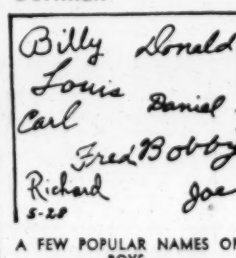 Billy Donald
Louis
Carl Daniel
Fred Bobby
Richard Joe
5-28
A FEW POPULAR NAMES OF
BOYS